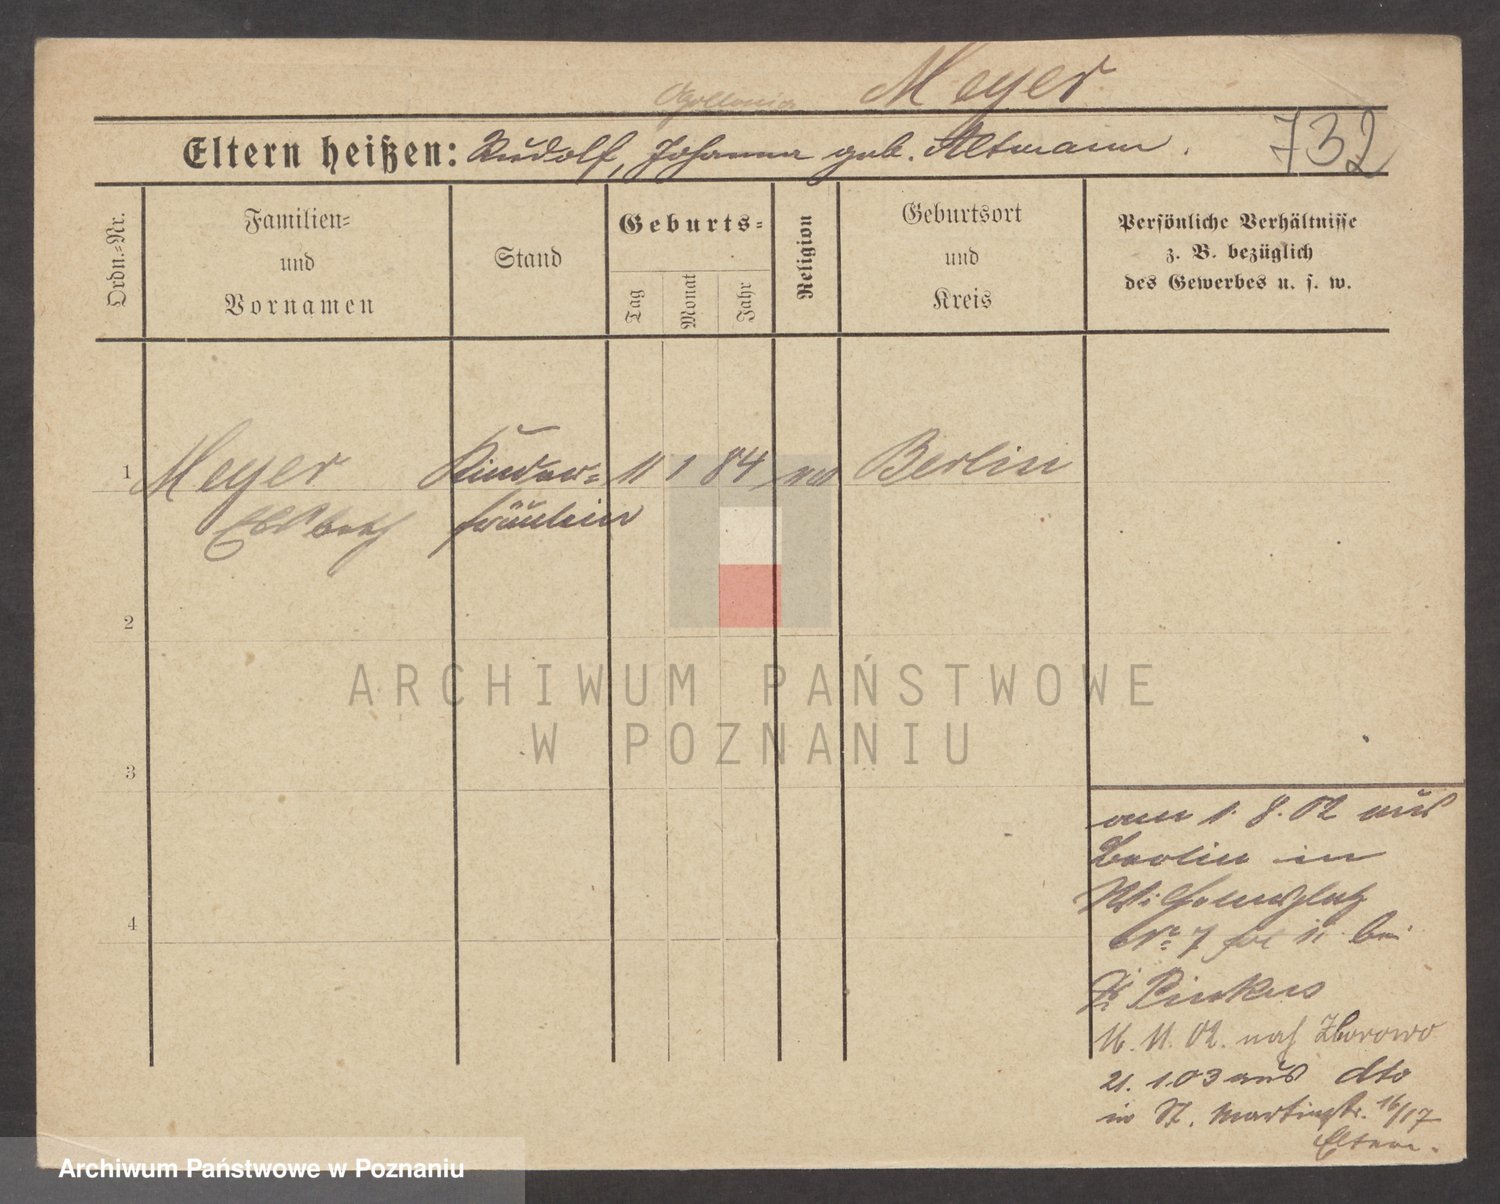 Meyer
Apollonia
Eltern heißen: Rudolf, Johanna geb. Altmann.
732
Ordn.-Nr.
Familien-
und
Vornamen
Stand
Geburts-
Tag
Monat
Jahr
Religion
Geburtsort
und
Kreis
Persönliche Verhältnisse
z. B. bezüglich
des Gewerbes u. s. w.
1 Meyer Kinder- 11 1 84 Berlin
Elsbeth fräulein
2
ARCHIWUM PAŃSTWOWE
W POZNANIU
3
4
1. 8. 02 aus
Berlin in
Wilhelmsplatz
No 7 bei
Pinkus
16. 11. 02. nach Zborowo
21. 1 03 aus dto
in St. Martinstr. 16/17
Eltern.
Archiwum Państwowe w Poznaniu